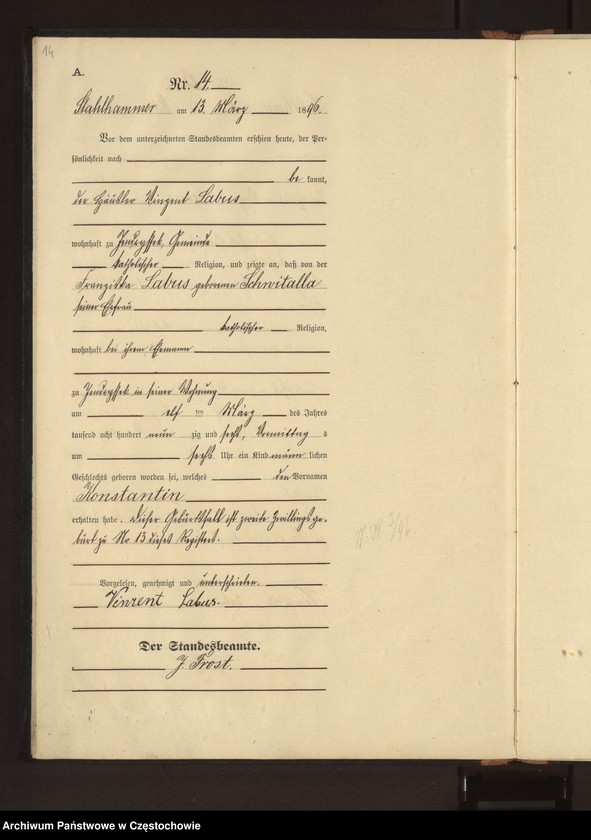 14
A.
Nr. 14.
Stahlhammer am 13. März 1896.
Vor dem unterzeichneten Standesbeamten erschien heute, der Per-
sönlichkeit nach
be kannt,
der Häusler Vinzent Labus
wohnhaft zu Jendryssek, Gemeinde
katholischer Religion, und zeigte an, daß von der
Franziska Labus geborenen Schwitalla
seiner Ehefrau
katholischer Religion,
wohnhaft bei ihrem Ehemann
zu Jendryssek in seiner Wohnung
am elf ten März des Jahres
tausend acht hundert neun zig und sechs, Vormittag s
um sechs Uhr ein Kind männ lichen
Geschlechts geboren worden sei, welches den Vornamen
Konstantin
erhalten habe. Dieser Geburtsfall ist zweite Zwillingsge-
burt zu Nr 13 dieses Registers.
Vorgelesen, genehmigt und unterschrieben.
Vinzent Labus.
Der Standesbeamte.
J. Frost.
Archiwum Państwowe w Częstochowie